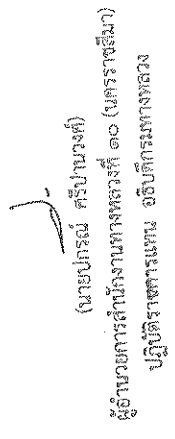 (นายปกรณ์ ศรีปานวงศ์)
ผู้อำนวยการสำนักงานทางหลวงที่ ๑๐ (นครราชสีมา)
ปฏิบัติราชการแทน อธิบดีกรมทางหลวง